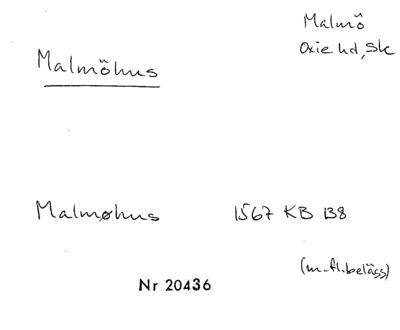 Malmö
Oxie hd, Sk
Malmöhus
Malmøhus 1567 KB B8
(m. fl. belägg)
Nr 20436